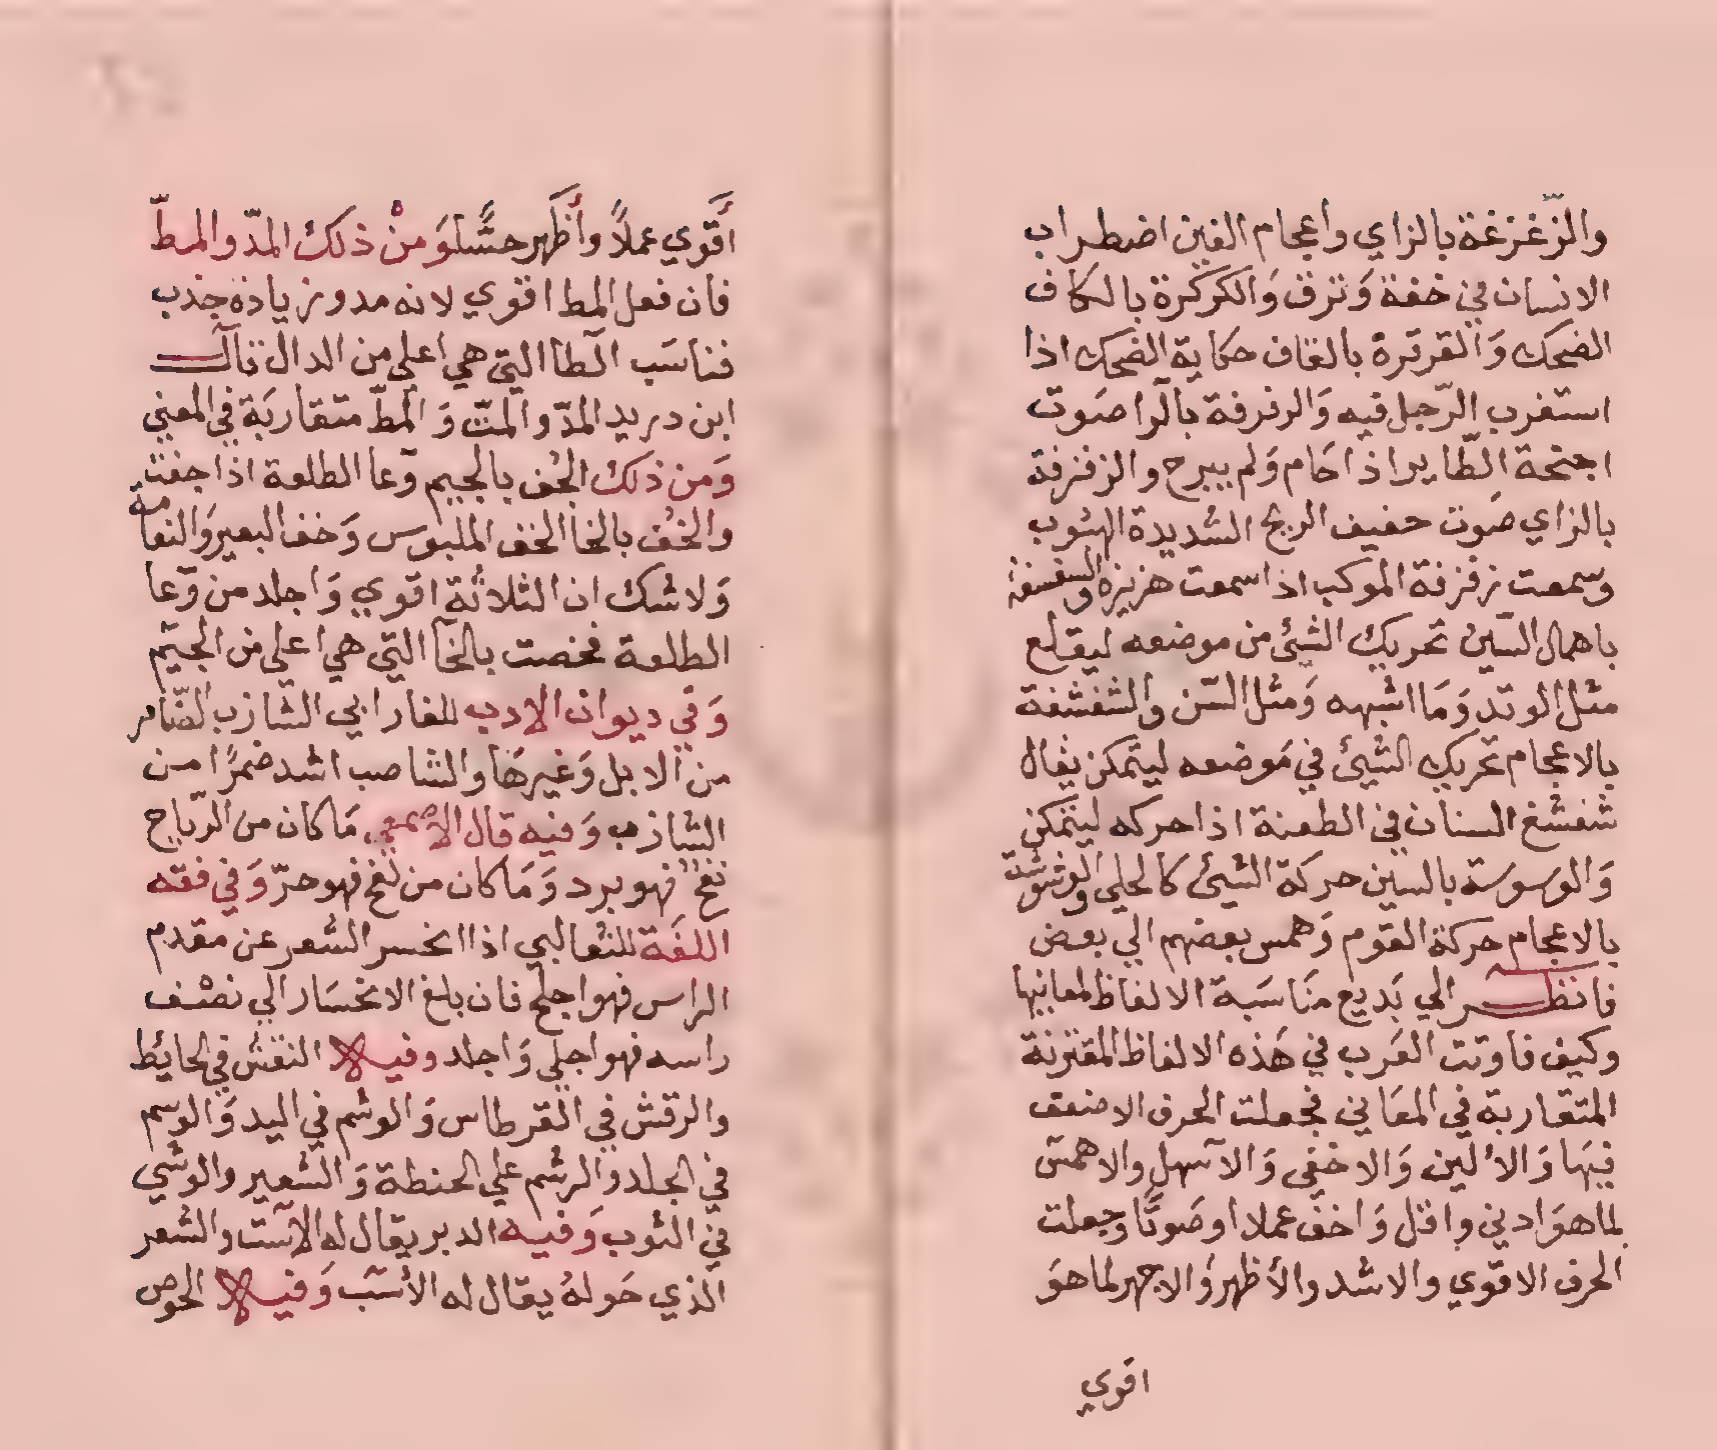 والزّغزغة بالزاي واعجام الغين اضطراب
الانسان في خفة وَنزق وَالكركرة بالكاف
الضحك وَالقرقرة بالقاف حكاية الضحك اذا
استغرب الرّجل فيه وَالرفرفة بالرا صَوت
اجنحة الطّاير اذا حَام وَلم يبرح والزفزفة
بالزاي صَوت حفيف الريح الشديدة الهبوب
وسمعت زفزفة الموكب اذا سمعت هزيزه والسغسغة
باهمال السّين تحريك الشئ من موضعه ليقلع
مثل الوتد وَمَا اشبهه وَمثل السّن والشغشغة
بالاعجام تحريك الشيئ في مَوضعه ليتمكن يقال
شغشغ السنان في الطعنة اذا حركه ليتمكن
وَالوسوسة بالسين حركة الشيئ كالحلي والوشوشة
بالاعجام حركة القوم وَهمس بعضهم الي بعض
فانظر الي بَديع منَاسَبة الالفاظ لمعانيها
وكيف فاوتت العَرب في هَذه الالفاظ المقترنة
المتقاربة في المعَاني فجعلت الحرف الاضعف
فيهَا وَالألين وَالاخفى وَالاسهل والاهمس
لما هوَ ادني واقل وَاخف عملا او صَوتًا وجعلت
الحرف الاقوي والاشد والأظهر وَالاجهر لما هوَ
اقوي
أَقوي عملاً وأظهر حسًّا وَمنْ ذلك المدّ والمطّ
فان فعل المط اقوي لانه مد وزيادة جذب
فناسَب الطا التي هي اعلي من الدال قال
ابن دريد المدّ والمتّ وَالمطّ متقاربَة في المعني
وَمن ذلك الجُف بالجيم وَعا الطلعة اذا جفت
والخُف بالخا الخف الملبوس وَخف البعير وَالنعامة
وَلا شك ان الثلاثة اقوي وَاجلد من وَعا
الطلعة فخصت بالخآ التي هي اعلي من الجيم
وَفي ديوان الادب للفارابي الشازب الضّامر
من الابل وَغيرهَا والشاصب اشد ضمرًا من
الشازب وَفيه قال الاصمعي مَا كان من الرّياح
نفخ فهو برد وَمَا كان من لفح فهو حرّ وَفي فقه
اللغَة للثعالبي اذا انحسر الشعر عن مقدم
الراس فهو اجلح فان بلغ الانحسَار الي نصْف
راسه فهو اجلي وَاجله وفيه النقش في الحائط
والرقش في القرطاس وَالوشم في اليد وَالوسم
في الجلد وَالرشم علي الحنطة وَالشعير والوشي
في الثوب وَفيه الدبر يقال له الاست والشعر
الذي حَولهُ يقال له الأسب وَفيه الحوص